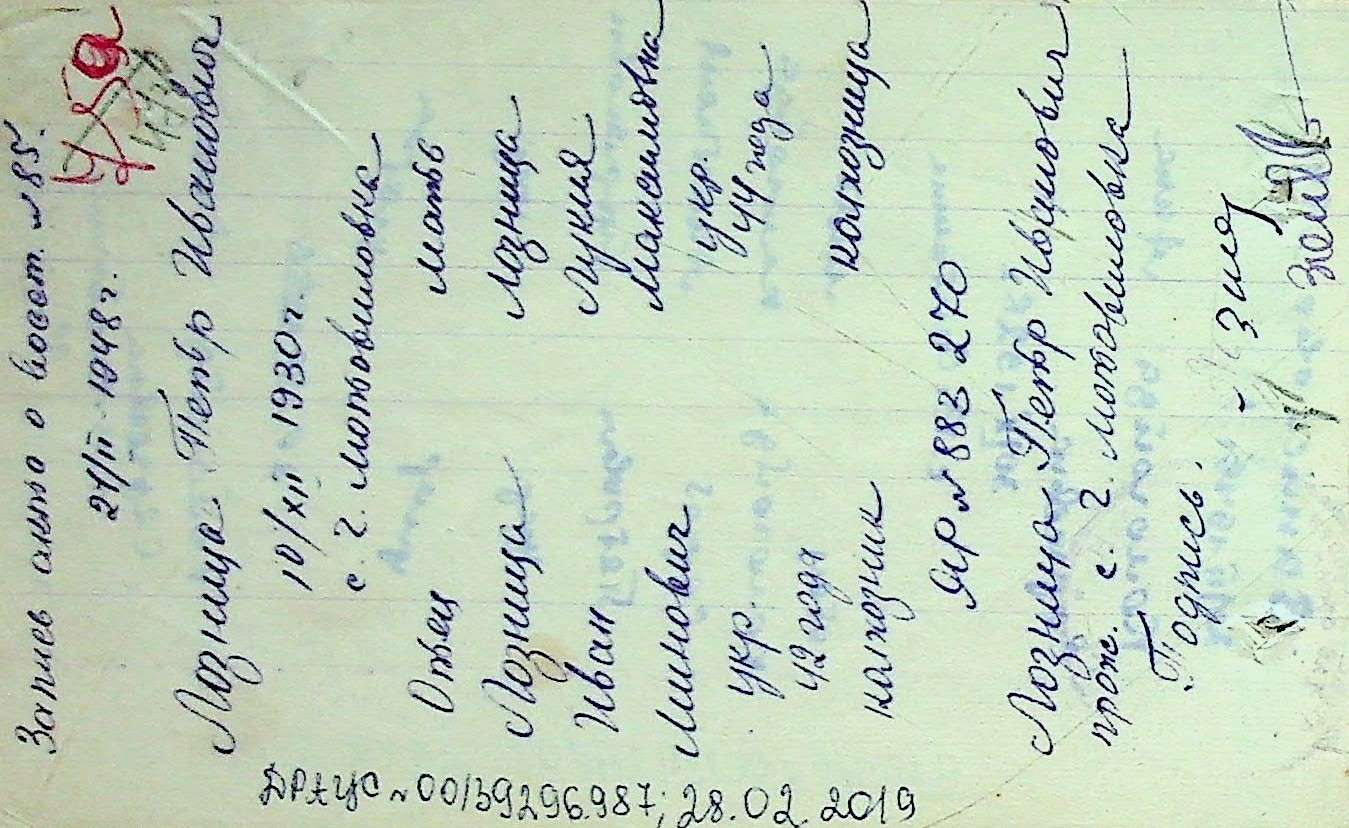 Запись акта о восст. № 85.
21/II - 1948 г.
Лозница Петр Иванович
10/XII 1930 г.
с. Г. Мотовиловка
Отец мать
Лозница Лозница
Иван Лукия
Минович Максимовна
укр. укр.
42 года 44 года
колхозник колхозница
ЯР № 883 270
Лозница Петр Иванович
прож. с. Г. Мотовиловка
Подпись.
ДРАЦС № 00139296987; 28.02.2019